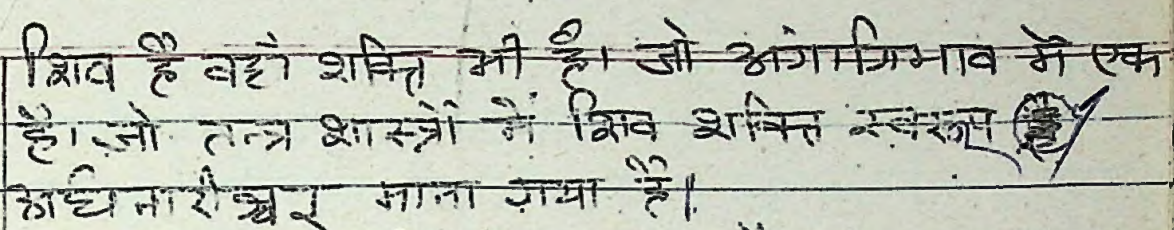 शिव है वहाँ शक्ति भी है। जो अंगागिभाव में एक
है। जो तन्त्र शास्त्रों में शिव शक्ति स्वरूप
अर्धनारीश्वर माना गया है।